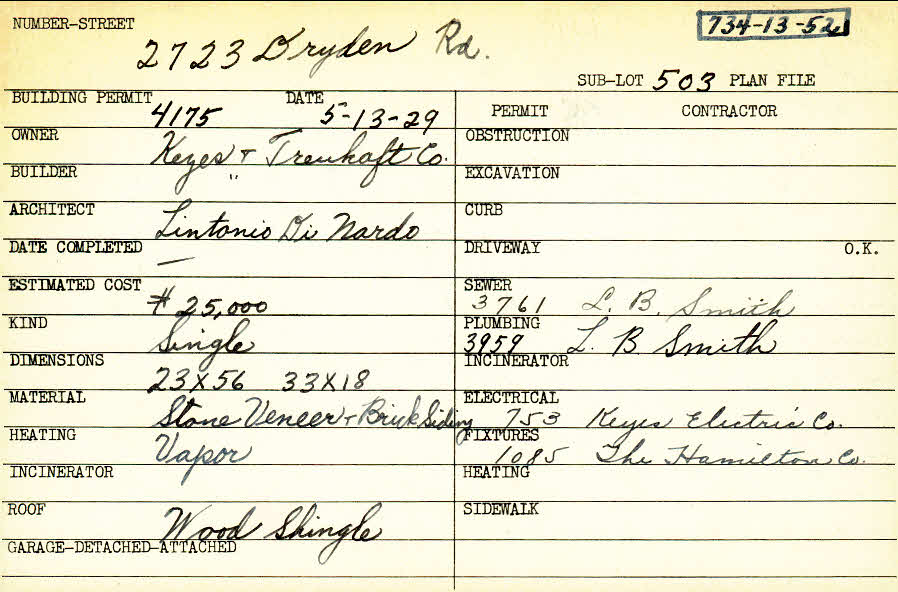 NUMBER-STREET 2723 Dryden Rd.
734-13-52
SUB-LOT 503 PLAN FILE
BUILDING PERMIT 4175 DATE 5-13-29
OWNER Keyes + Treuhaft Co.
BUILDER "
ARCHITECT Lintonio Di Nardo
DATE COMPLETED —
ESTIMATED COST $25,000
KIND Single
DIMENSIONS 23X56 33X18
MATERIAL Stone Veneer + Brick Siding
HEATING Vapor
INCINERATOR
ROOF Wood Shingle
GARAGE-DETACHED-ATTACHED
PERMIT CONTRACTOR
OBSTRUCTION
EXCAVATION
CURB
DRIVEWAY O.K.
SEWER 3761 L. B. Smith
PLUMBING 3959 L. B. Smith
INCINERATOR
ELECTRICAL 753 Keyes Electric Co.
FIXTURES 1085 The Hamilton Co.
HEATING
SIDEWALK